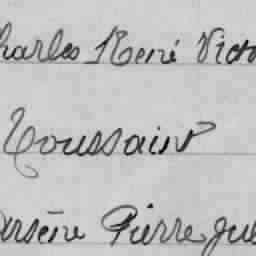 Charles René Victo
Toussaint
Arsène Pierre Jul